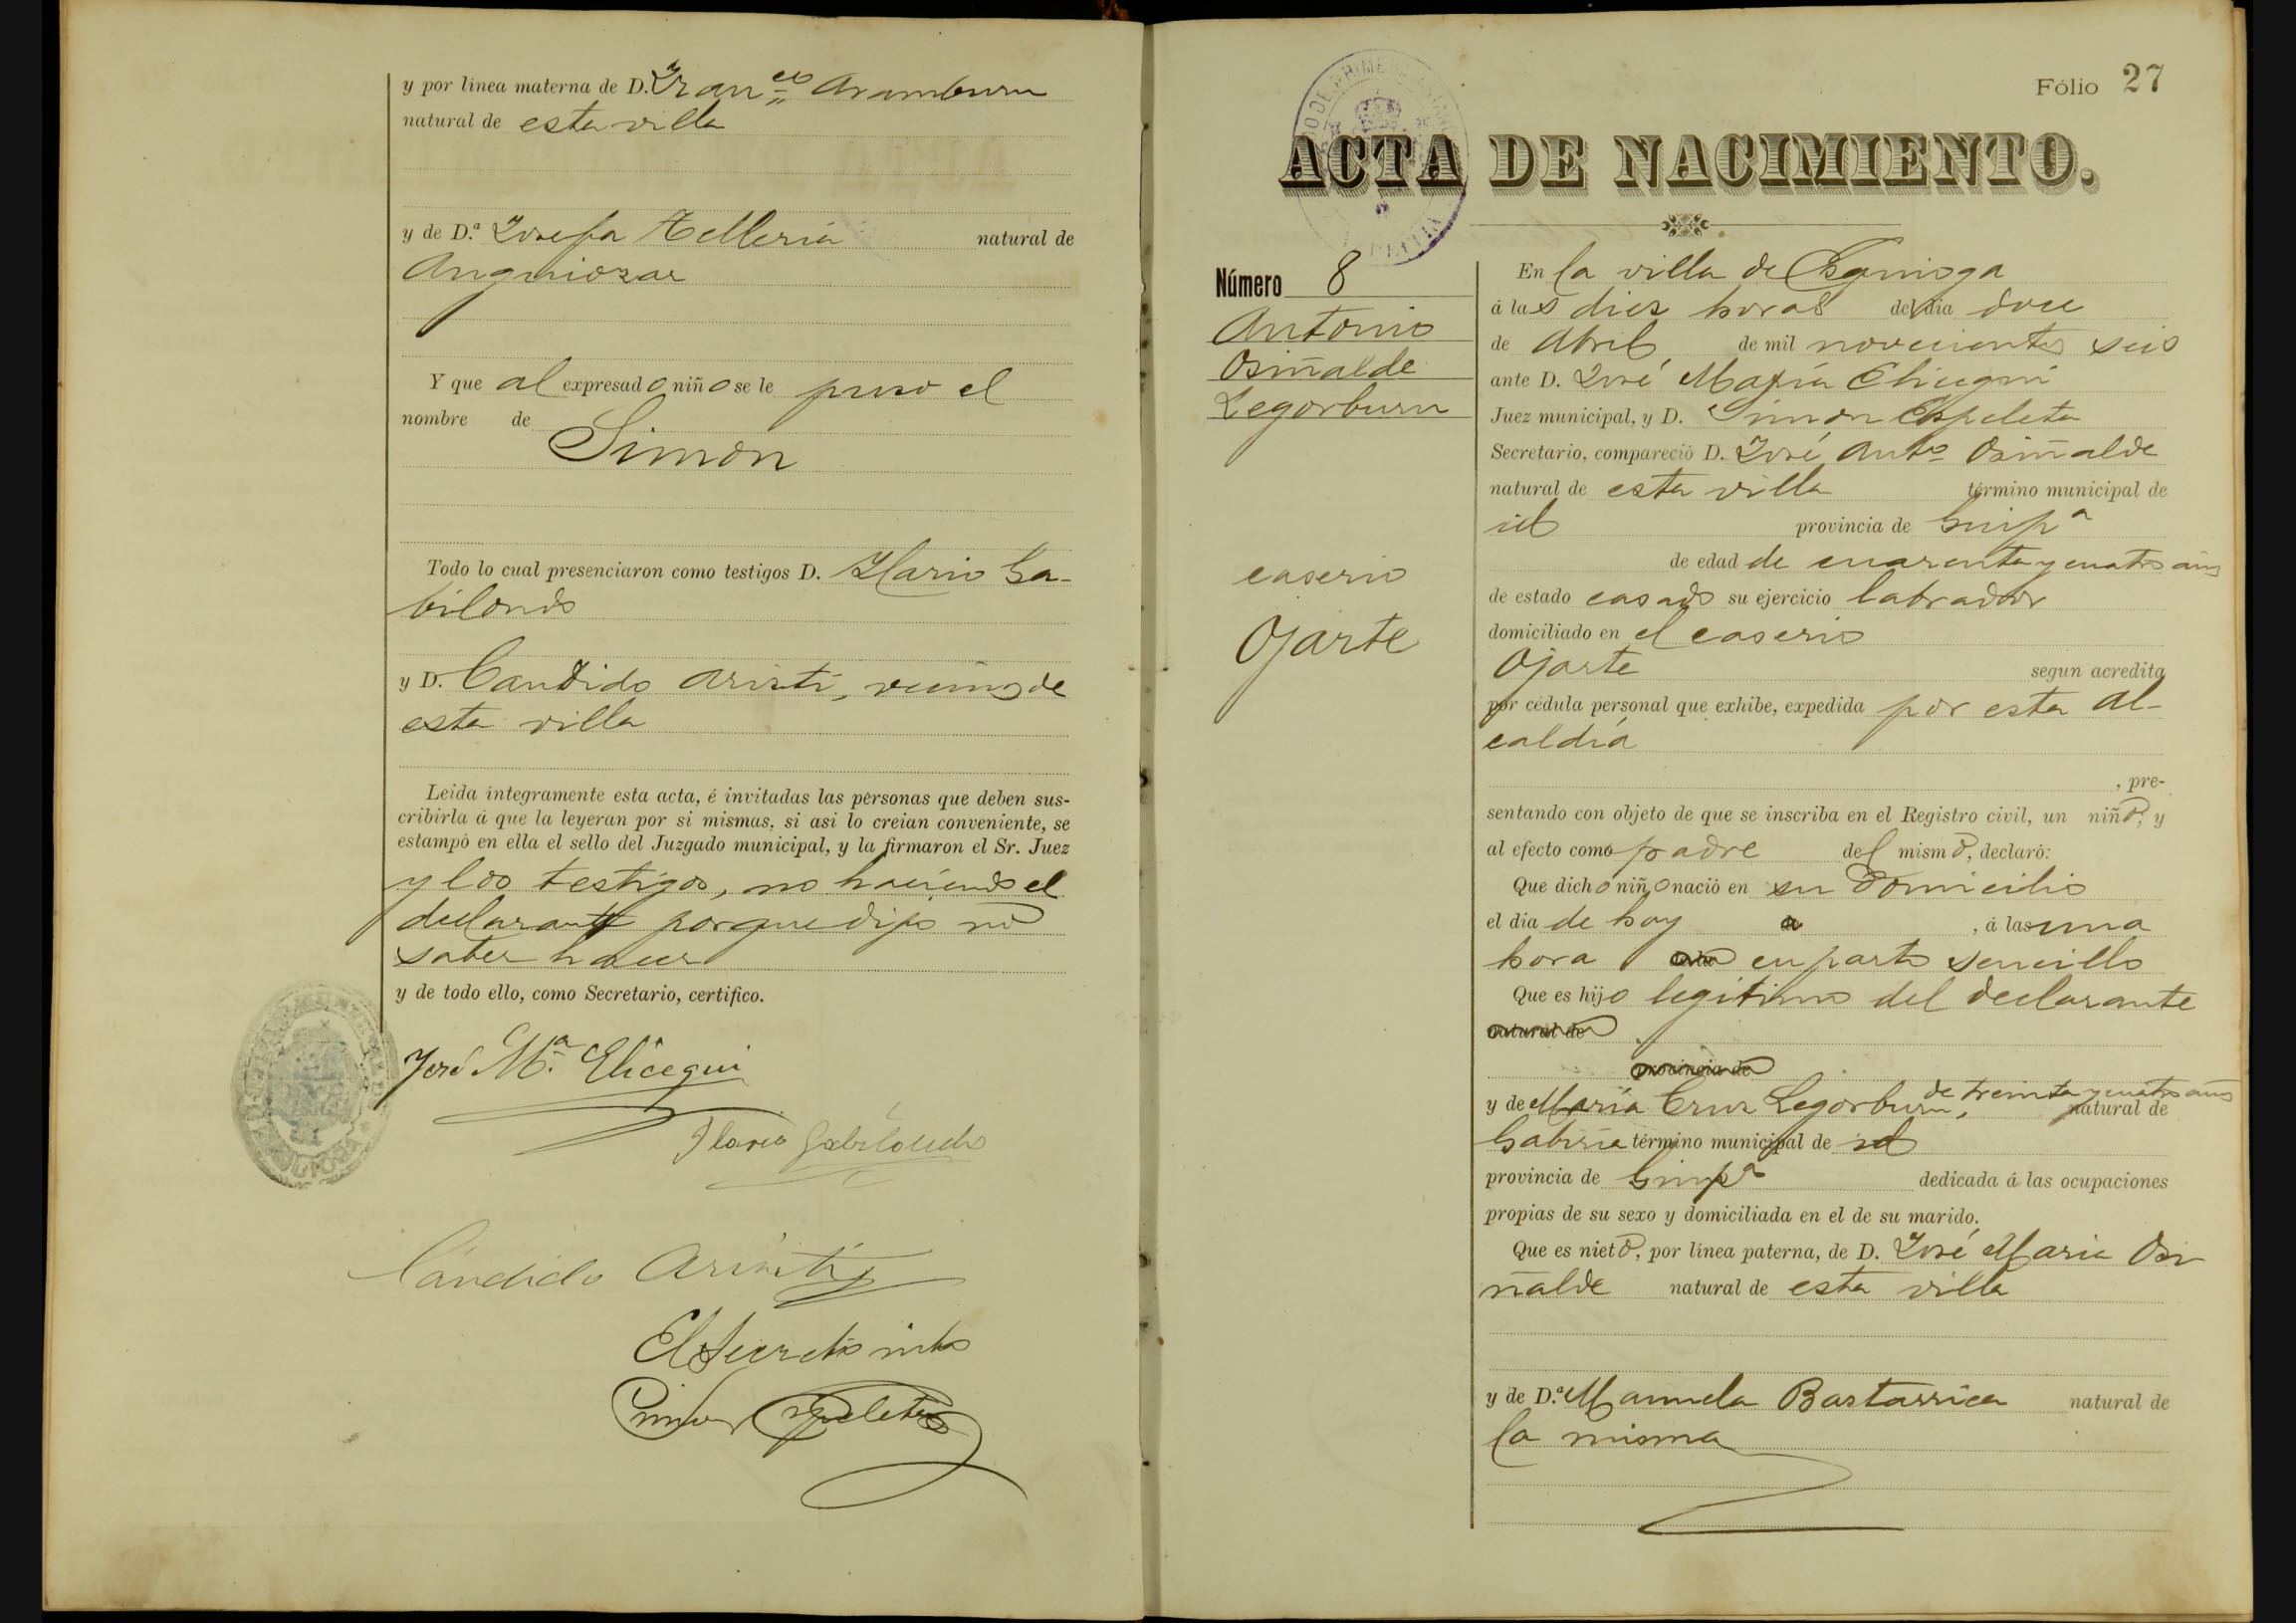 y por línea materna de D. Franco Aramburu
natural de esta villa
y de D.ª Josefa Telleria natural de
Anguiozar
Y que al expresado niño se le puso el
nombre de
Simon
Todo lo cual presenciaron como testigos D. Ylario Ga-
bilondo
y D. Candido Aristi, vecinos de
esta villa
Leida íntegramente esta acta, é invitadas las personas que deben sus-
cribirla á que la leyeran por si mismas, si asi lo creian conveniente, se
estampó en ella el sello del Juzgado municipal, y la firmaron el Sr. Juez
y los testigos, no haciendo el
declarante porque dijo no
saber hacer
y de todo ello, como Secretario, certifico.
José M.ª Elicegui
Ylario Gabilondo
Cándido Aristi
El Secretº intº
Simon Espeleta
Fólio 27
ACTA DE NACIMIENTO.
Número 8
Antonio
Osiñalde
Legorburu
caserio
Ojarte
En la villa de Ezquioga
á las diez horas del dia doce
de Abril de mil novecientos seis
ante D. José María Elicegui
Juez municipal, y D. Simon Espeleta
Secretario, compareció D. José Antº Osiñalde
natural de esta villa término municipal de
id provincia de Guipª
de edad de cuarenta y cuatro años
de estado casado su ejercicio labrador
domiciliado en el caserio
Ojarte segun acredita
por cédula personal que exhibe, expedida por esta Al-
caldía
, pre-
sentando con objeto de que se inscriba en el Registro civil, un niño, y
al efecto como padre del mismo, declaró:
Que dicho niño nació en su domicilio
el dia de hoy a , á las una
hora en parto sencillo
Que es hijo legítimo del declarante
natural de
provincia de
y de María Cruz Legorburu, de treinta y cuatro años natural de
Gabiria término municipal de id
provincia de Guipª dedicada á las ocupaciones
propias de su sexo y domiciliada en el de su marido.
Que es nieto, por línea paterna, de D. José Maria Osi
ñalde natural de esta villa
y de D.ª Manuela Bastarrica natural de
la misma